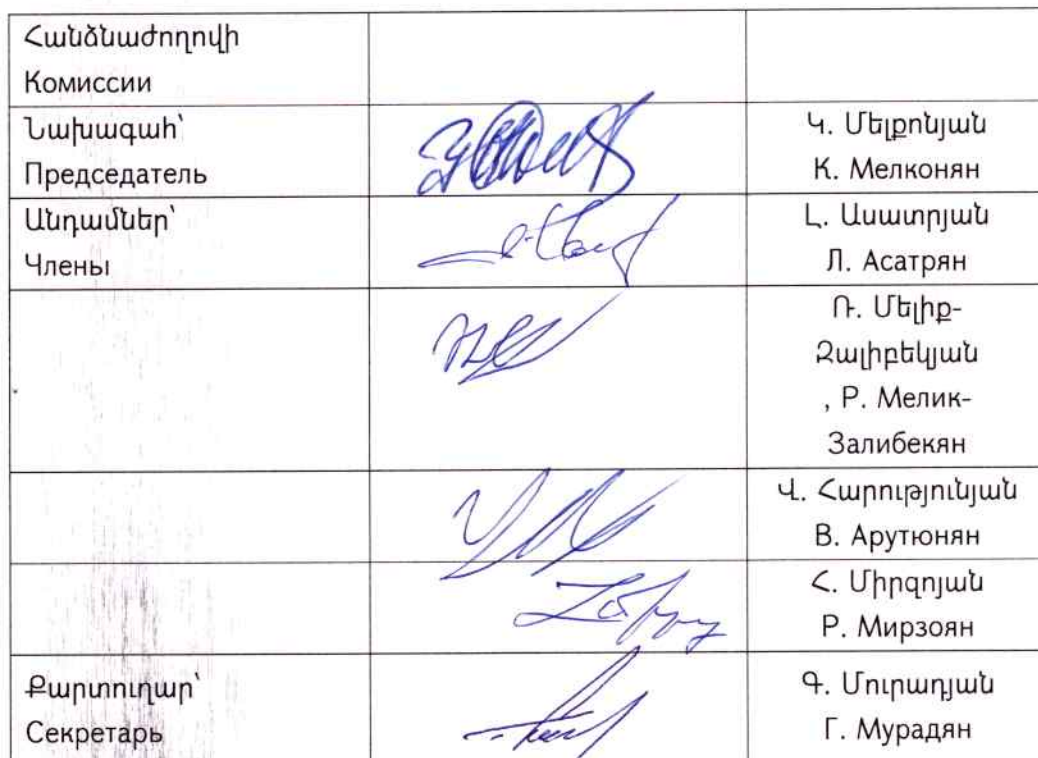 Հանձնաժողովի
Комиссии
Նախագահ՝
Председатель
Կ. Մելքոնյան
К. Мелконян
Անդամներ՝
Члены
Լ. Ասատրյան
Л. Асатрян
Ռ. Մելիք-
Զալիբեկյան
, Р. Мелик-
Залибекян
Վ. Հարությունյան
В. Арутюнян
Հ. Միրզոյան
Р. Мирзоян
Քարտուղար՝
Секретарь
Գ. Մուրադյան
Г. Мурадян